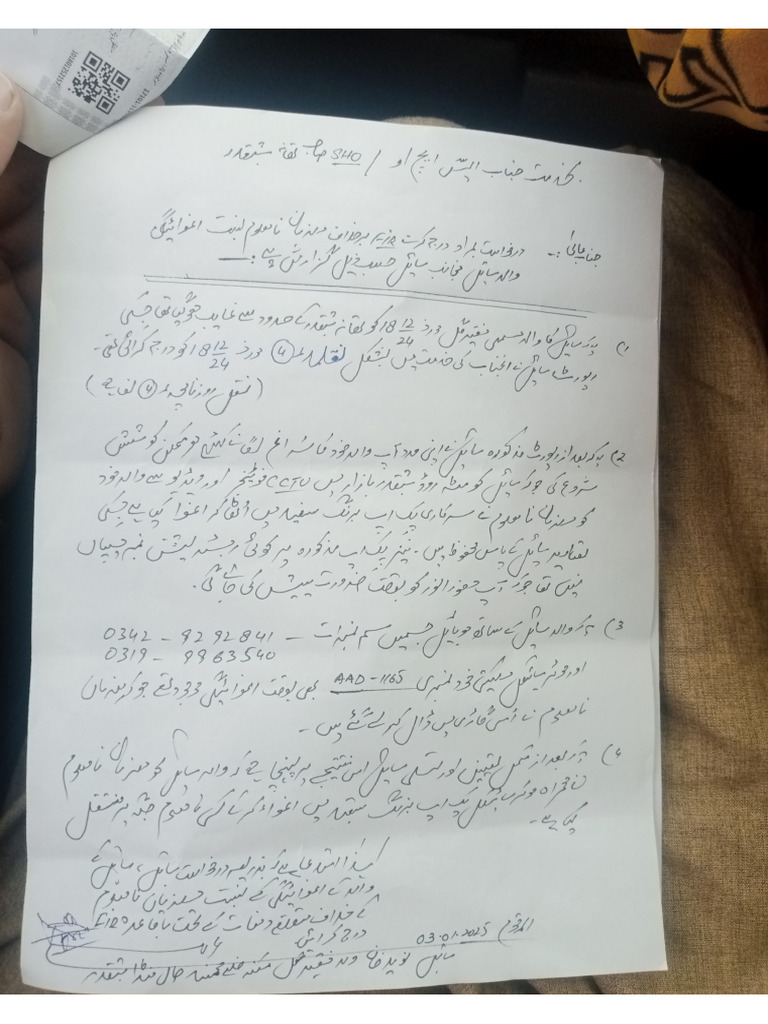 بخدمت جناب ایس ایچ او / SHO صاحب تھانہ شبقدر
جناب عالی! درخواست بمراد درج کرنے FIR برخلاف ملزمان نامعلوم نسبت اغوائیگی
والد سائل منجانب سائل حسب ذیل گزارش ہے :۔
1) یہ کہ سائل کا والد مسمی فقیر گل مورخہ 18 12/24 کو تھانہ شبقدر کے حدود سے غایب ہو گیا تھا جسکی
رپورٹ سائل نے آنجناب کی خدمت میں بشکل نقلمد 4 مورخہ 18 12/24 کو درج کرائی تھی۔
(نقل روزنامچہ مد 4 لف ہے)
2) یہ کہ بعد از رپورٹ مذکورہ سائل نے اپنی مدد آپ والد خود کا سراغ لگانے کیلئے ہر ممکن کوشش
شروع کی جو کہ سائل کو مٹہ روڈ شبقدر بازار میں CCTV فوٹیج اور ویڈیو سے والد خود
کو ملزمان نامعلوم نے سرکاری پک اپ برنگ سفید میں اٹھا کر اغوا کیا ہے جسکی
تصاویر سائل کے پاس محفوظ ہیں۔ نیز پک اپ مذکورہ پر کوئی رجسٹریشن نمبر چسپاں
نہیں تھا جو کہ آپ حضور انور کو بوقت ضرورت پیش کی جائے گی۔
3) یہ کہ والد سائل کے ساتھ موبائل جسمیں سم نمبرات – 0342 - 9292841
0319 - 9963540
اور موٹر سائیکل ملکیتی خود نمبری AAD-1165 بھی بوقت اغوائیگی موجود تھے جو کہ ملزمان
نامعلوم نے اسی گاڑی میں ڈال کر لے گئے ہیں۔
4) یہ کہ بعد از مکمل یقین اور تسلی سائل اس نتیجے پر پہنچا ہے کہ والد سائل کو ملزمان نامعلوم
نے ہمراہ موٹر سائیکل پک اپ برنگ سفید میں اغواء کر کے کسی نامعلوم جگہ پر منتقل
کیا ہے۔
لہذا استدعا ہے کہ بذریعہ درخواست سائل، سائل کے
والد کے اغوائیگی کے نسبت ملزمان نامعلوم
کے خلاف متعلقہ دفعات کے تحت باقاعدہ FIR
درج کرائیں
المرقوم 03-01-2025
سائل نوید خان ولد فقیر گل سکنہ حال شبقدر